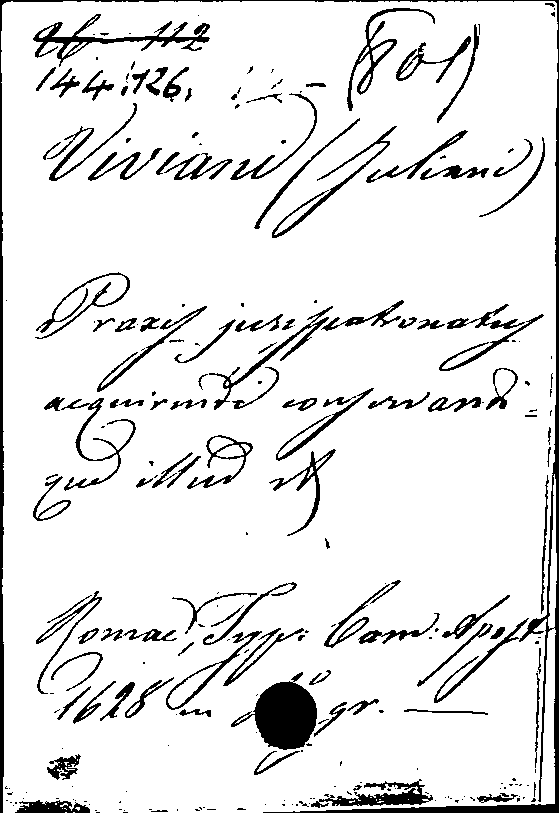 26-112
144.126. (801)
Viviani (Juliani)
Praxis jurispatronatus
acquirendi conservandi=
que illud
Romae, Typ: Cam: Apost
1628 in fo gr. —